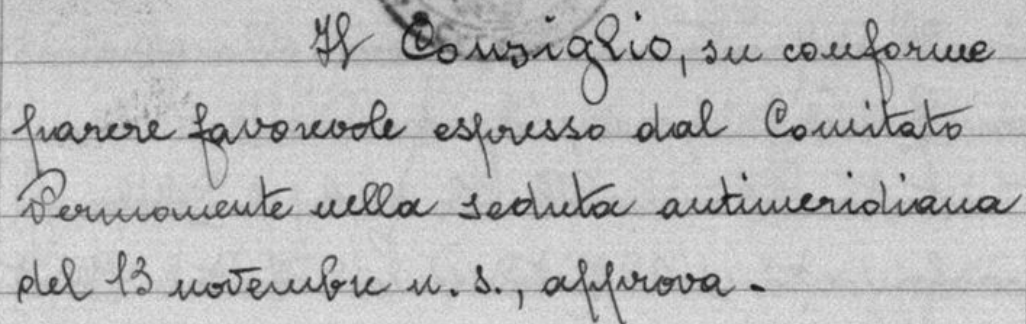 Il Consiglio, su conforme
parere favorevole espresso dal Comitato
Permanente nella seduta antimeridiana
del 13 novembre u. s., approva.